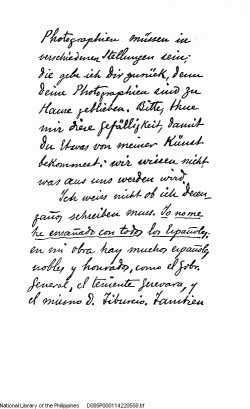 Photographien müssen in
verschiedenen Stellungen sein;
die gebe ich dir zurück, denn
deine Photographien sind zu
Hause geblieben. Bitte, thue
mir diese Gefälligkeit, damit
du Etwas von meiner Kunst
bekommest; wir wissen nicht
was aus uns werden wird.
Ich weiss nicht ob ich
schreiben muss. Yo no me
he ensañado con todos los Españoles;
en mi obra hay muchos españoles
nobles y honrados, como el Gobr.
General, el teniente Guevara, y
el mismo D. Tiburcio. Tambien
National Library of the Philippines